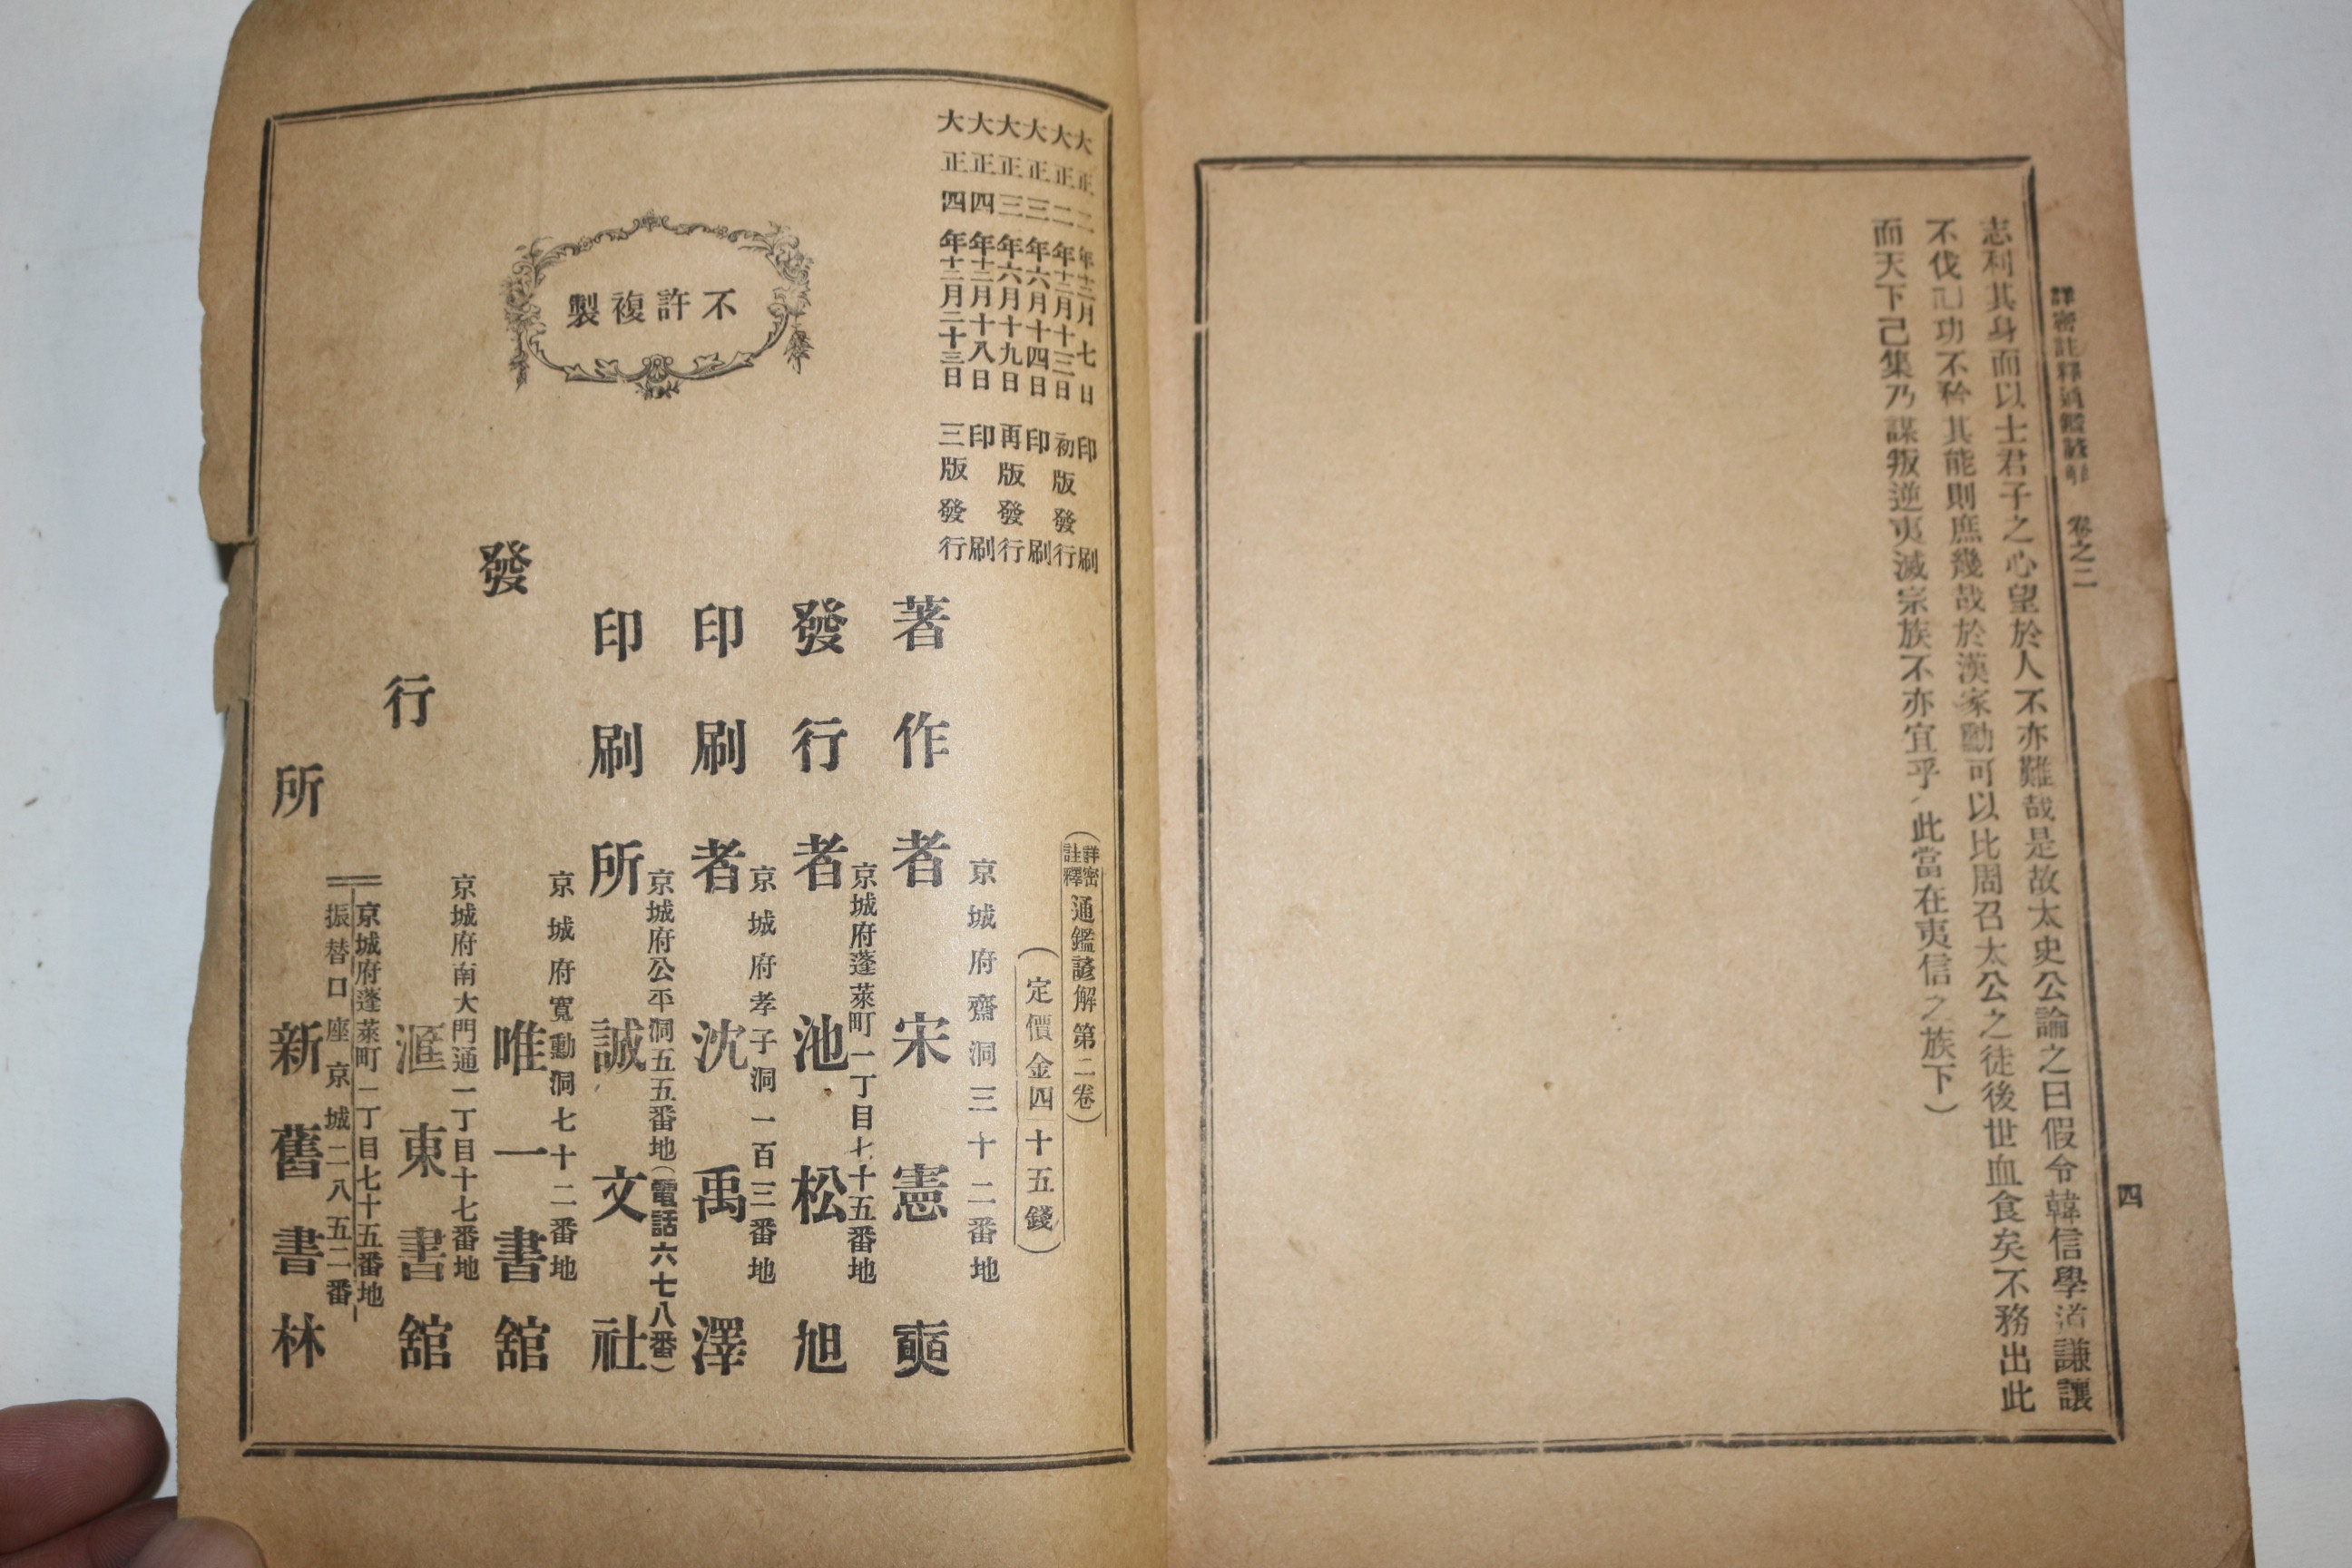 詳密註釋通鑑諺解 卷之二
四
志利其身而以士君子之心望於人不亦難哉是故太史公論之曰假令韓信學道謙讓
不伐己功不矜其能則庶幾哉於漢家勳可以比周召太公之徒後世血食矣不務出此
而天下已集乃謀叛逆夷滅宗族不亦宜乎、此當在夷信之族下)
大正二年十二月七日印刷
大正二年十二月十三日初版發行
大正三年六月十四日印刷
大正三年六月十九日再版發行
大正四年十二月十八日印刷
大正四年十二月二十三日三版發行
不許複製
(詳密註釋 通鑑諺解 第二卷)
(定價金四十五錢)
京城府齋洞三十二番地
著作者 宋憲奭
京城府蓬萊町一丁目七十五番地
發行者 池松旭
京城府孝子洞一百三番地
印刷者 沈禹澤
京城府公平洞五五番地(電話六七八番)
印刷所 誠文社
京城府寬勳洞七十二番地
發行所 唯一書館
京城府南大門通一丁目十七番地
滙東書館
京城府蓬萊町一丁目七十五番地
振替口座京城二八五二番
新舊書林